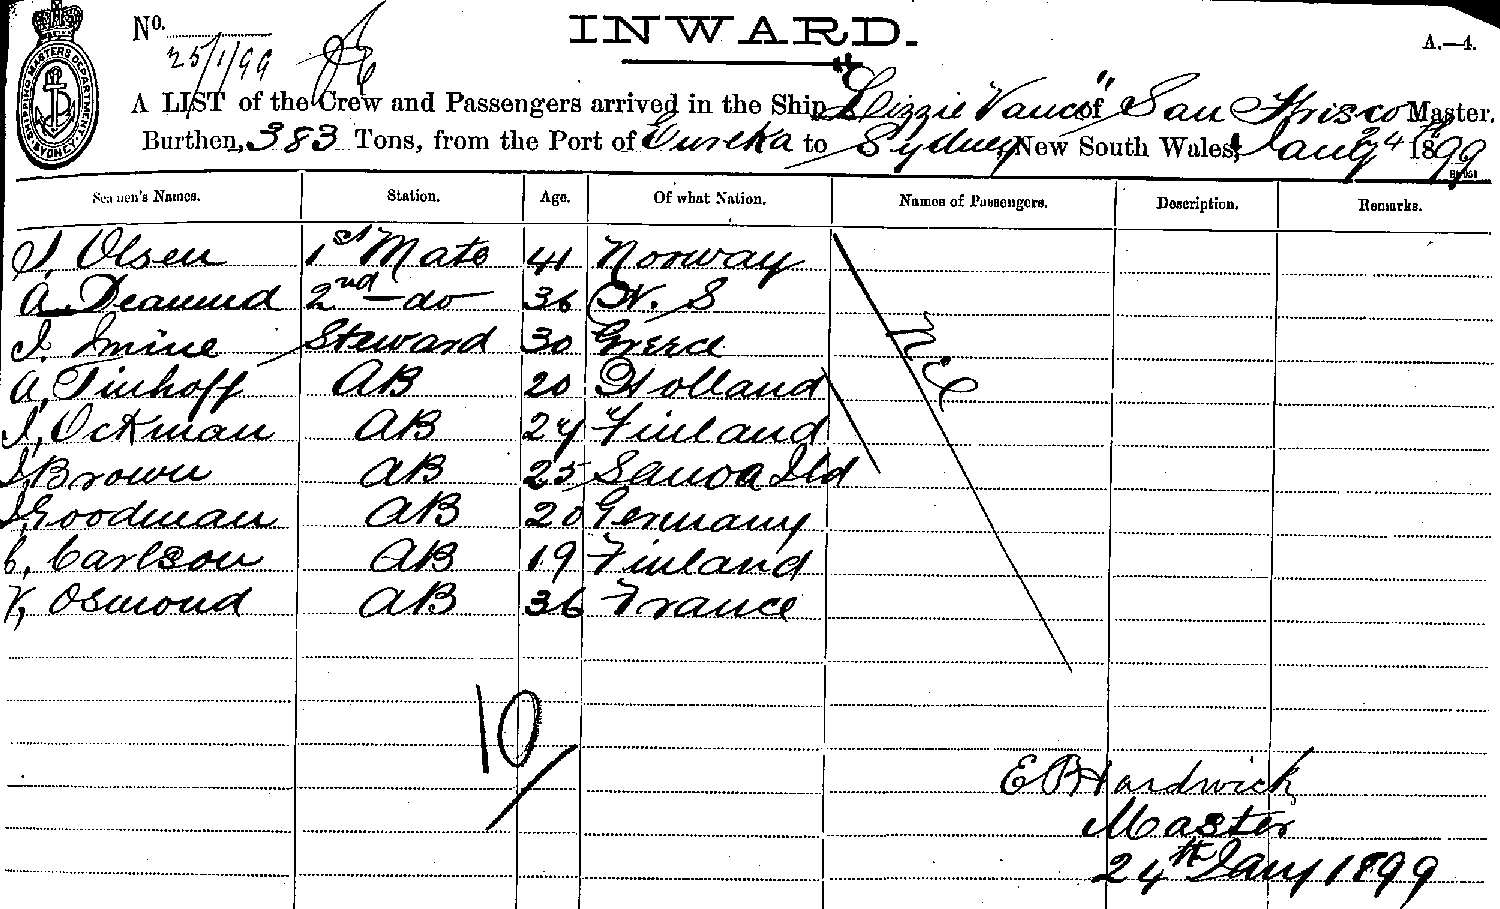 No.
25/1/99
INWARD.
A.—4.
SHIPPING MASTERS DEPARTMENT SYDNEY
A LIST of the Crew and Passengers arrived in the Ship "Lizzie Vance" of San Frisco Master.
Burthen, 383 Tons, from the Port of Eureka to Sydney New South Wales, Jany 24th 1899
Seamen's Names. Station. Age. Of what Nation. Names of Passengers. Description. Remarks.
Olsen 1st Mate 41 Norway
A. 2nd —do— 36 N. S
Steward 30 Greece
A, Tinhoff AB 20 Holland
Ockman AB 24 Finland
Brown AB 25 Samoa Ild
Goodman AB 20 Germany
C, Carlson AB 19 Finland
Osmond AB 36 France
Nil
10/
E B Hardwick
Master
24th Jany 1899